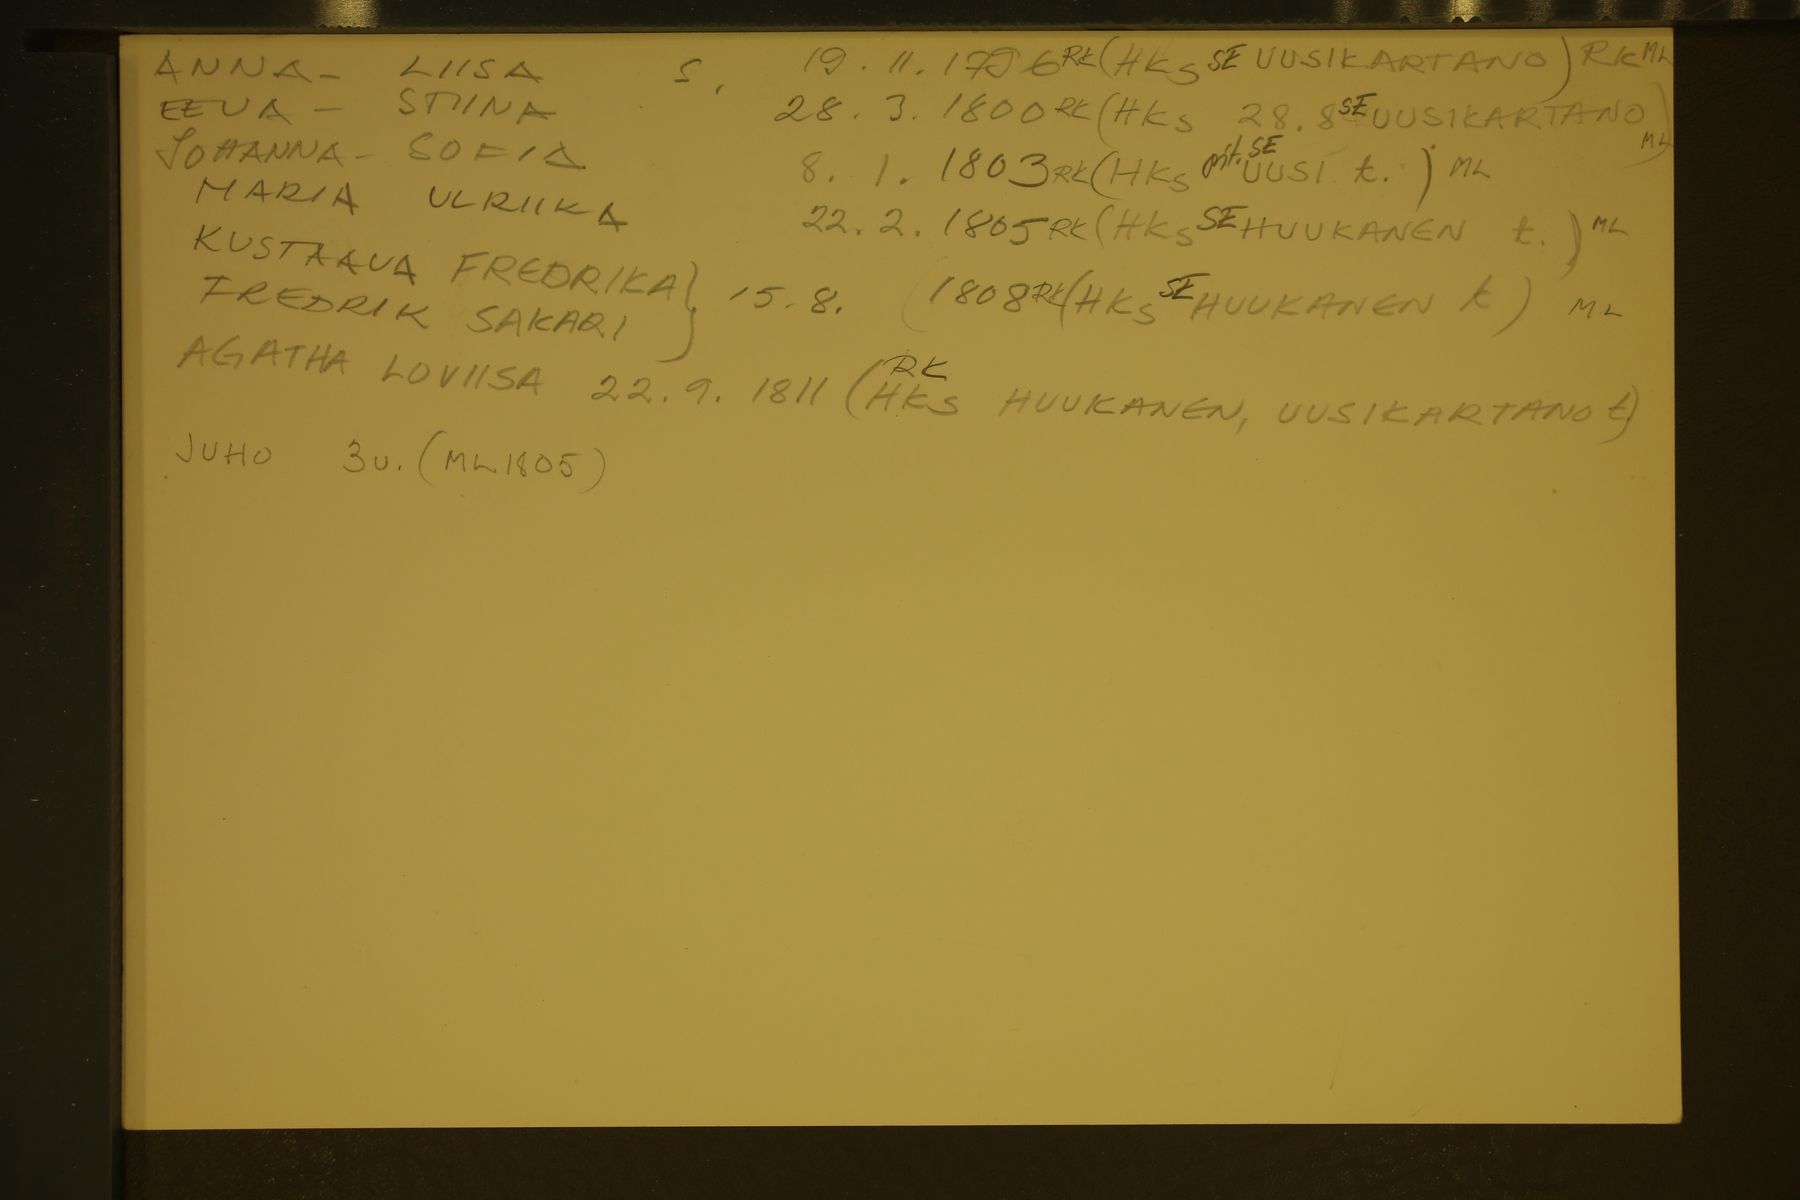 ANNA- LIISA S. 19.11.1796 RK (HKS SE UUSIKARTANO) RK ML
EEVA- STIINA 28.3.1800 RK (HKS 28.8 SE UUSIKARTANO) ML
JOHANNA- SOFIA 8.1.1803 RK (HKS pit. SE UUSI t.) ML
MARIA ULRIIKA 22.2.1805 RK (HKS SE HUUKANEN t.) ML
KUSTAAVA FREDRIKA } 15.8. (1808 RK (HKS SE HUUKANEN t) ML
FREDRIK SAKARI
AGATHA LOVIISA 22.9.1811 (RK HKS HUUKANEN, UUSIKARTANO t)
JUHO 3v. (ML 1805)